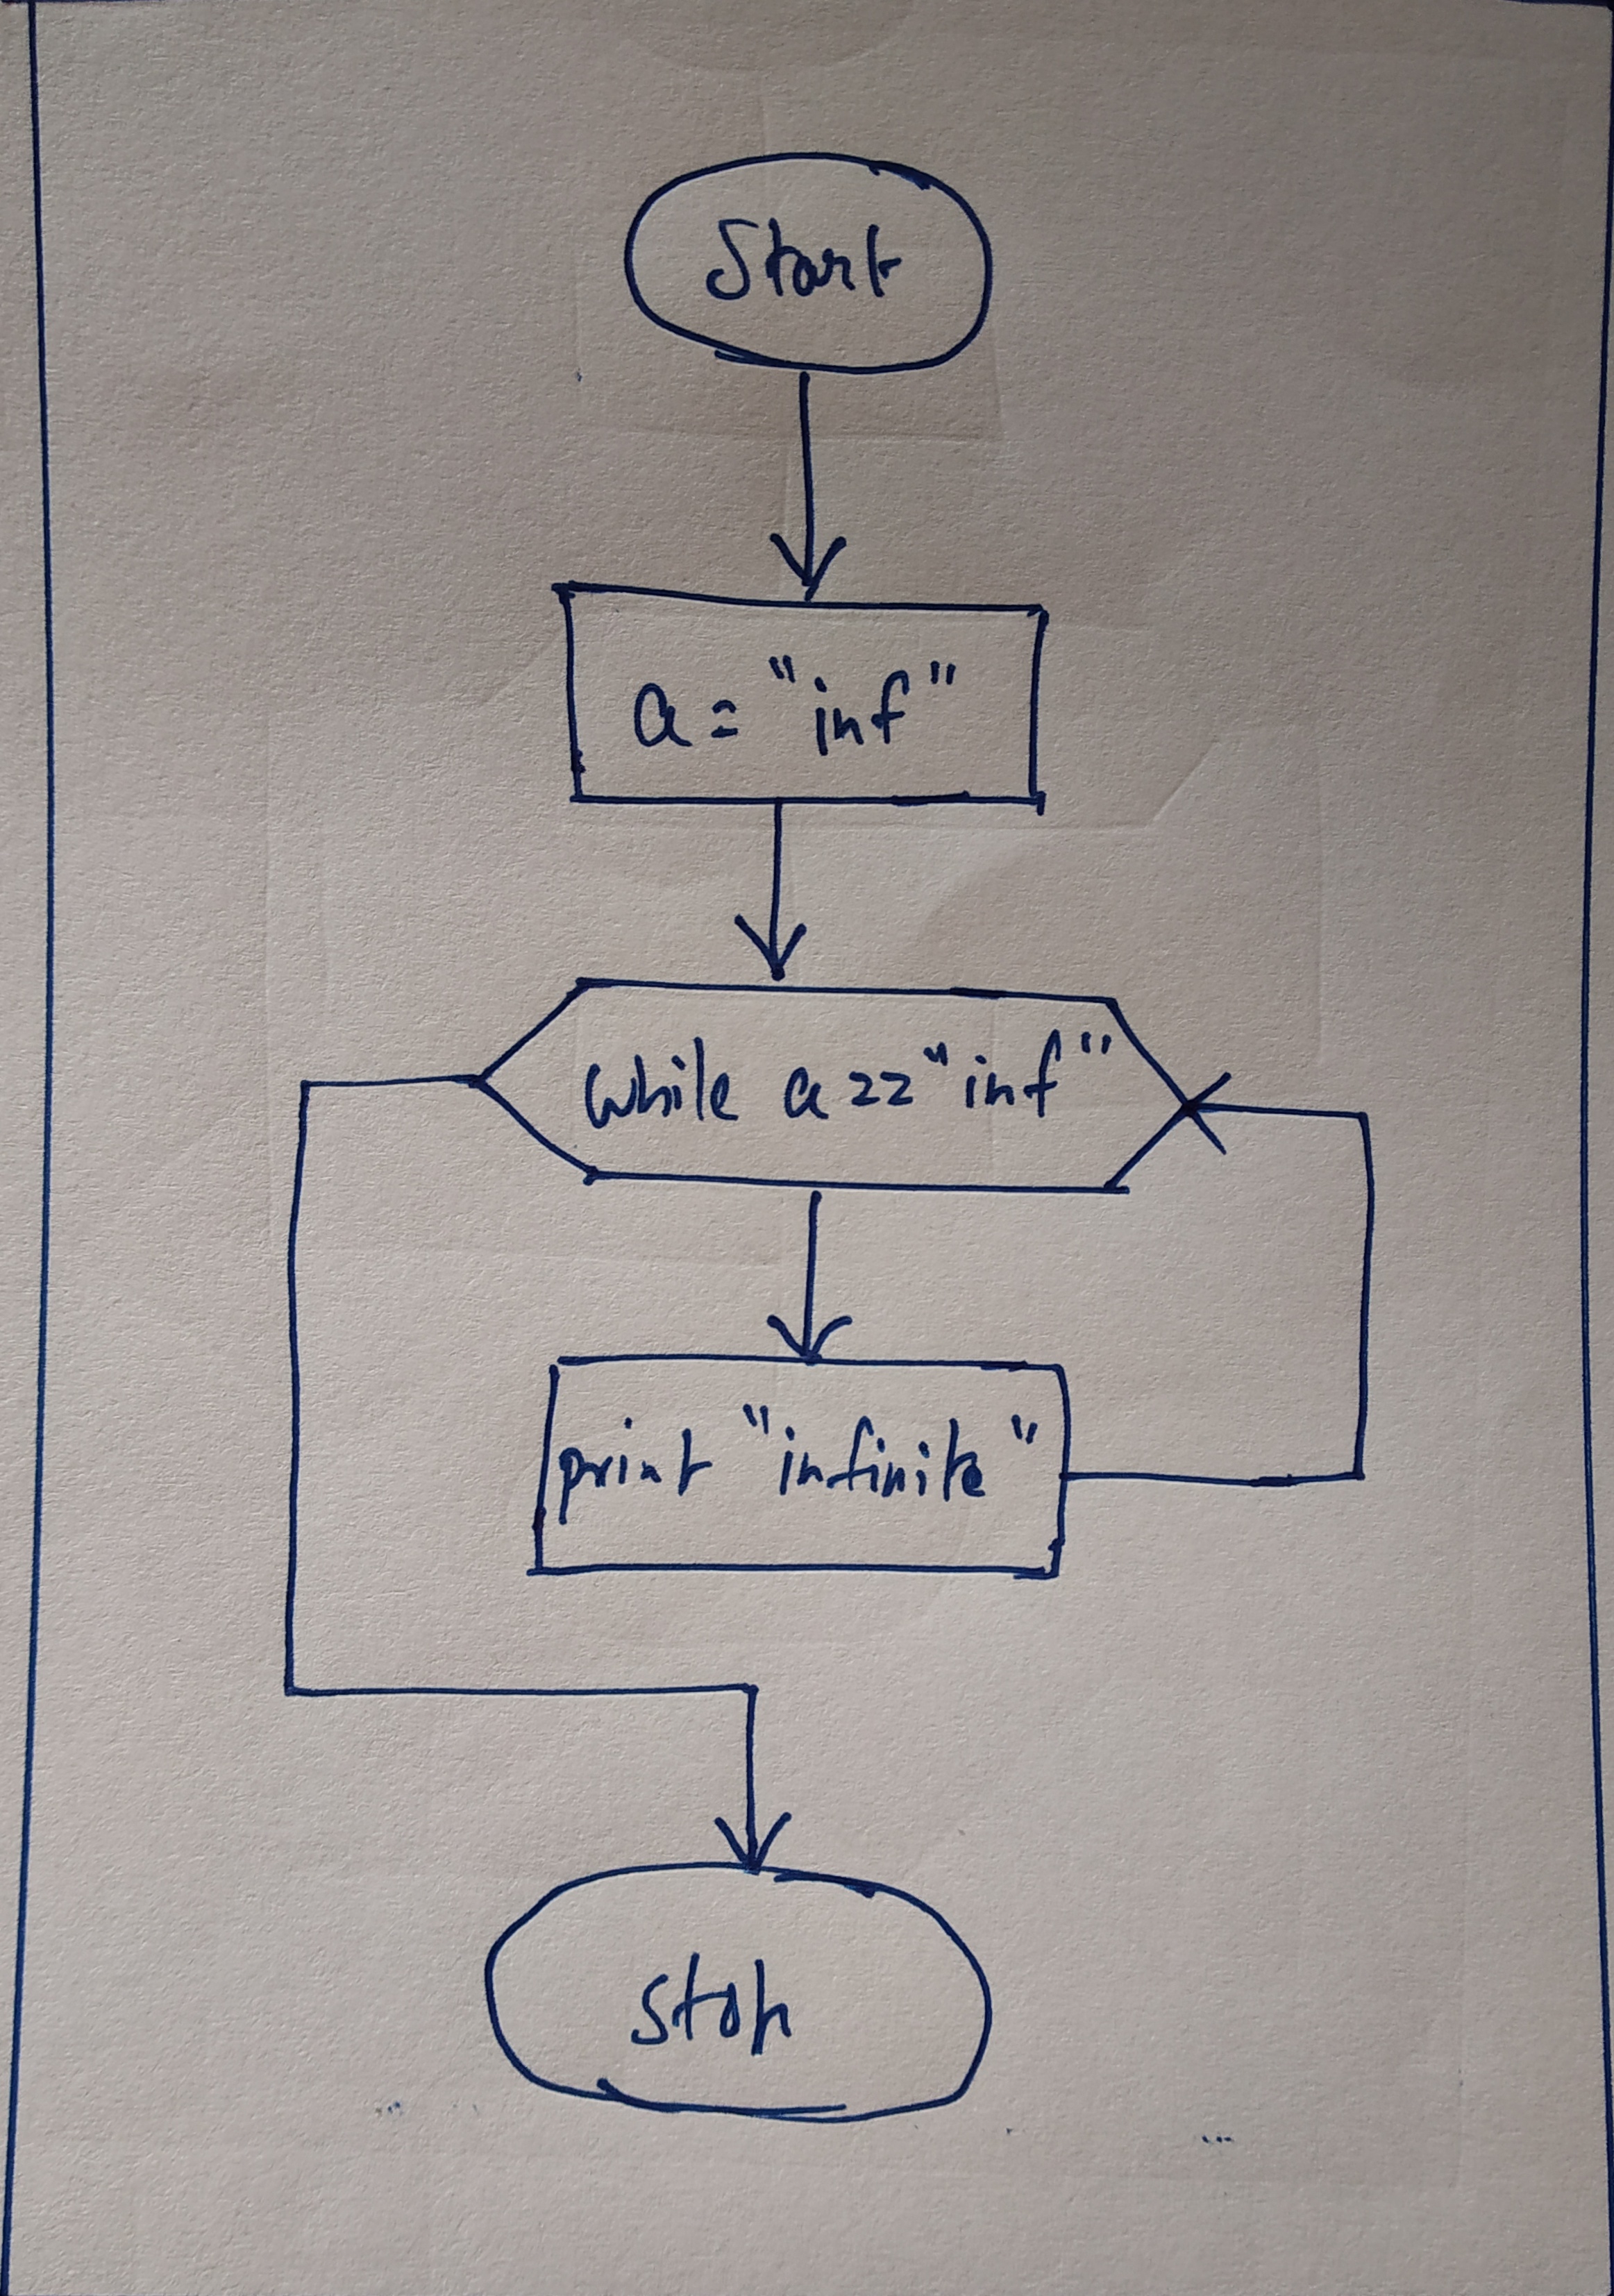 Start
a = "inf"
while a == "inf"
print "infinite"
stop